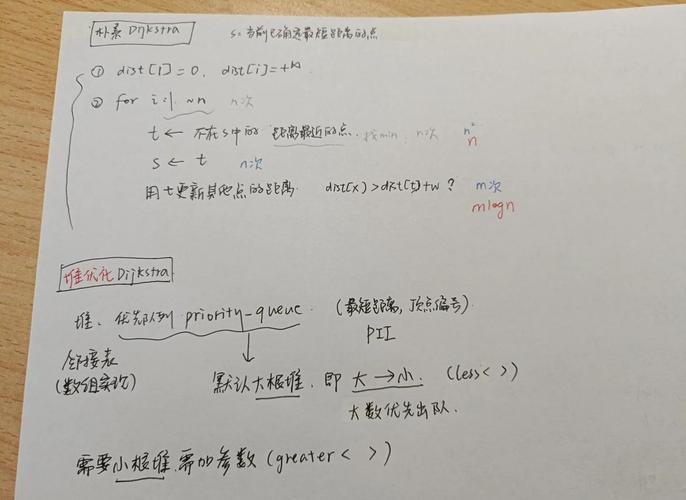 朴素Dijkstra s:当前已确定最短距离的点
① dist[1]=0, dist[i]=+∞
② for i:1~n n次
t ← 不在s中的 距离最近的点. 找min. n次 n² n
s ← t n次
用t更新其他点的距离. dist(x)>dist[t]+w ? m次
mlogn
堆优化Dijkstra
堆、优先队列 priority-queue. (最短距离,顶点编号).
PII
邻接表
(数组实现) 默认大根堆. 即 大→小. (less< >)
大数优先出队.
需要小根堆.需加参数(greater< >)